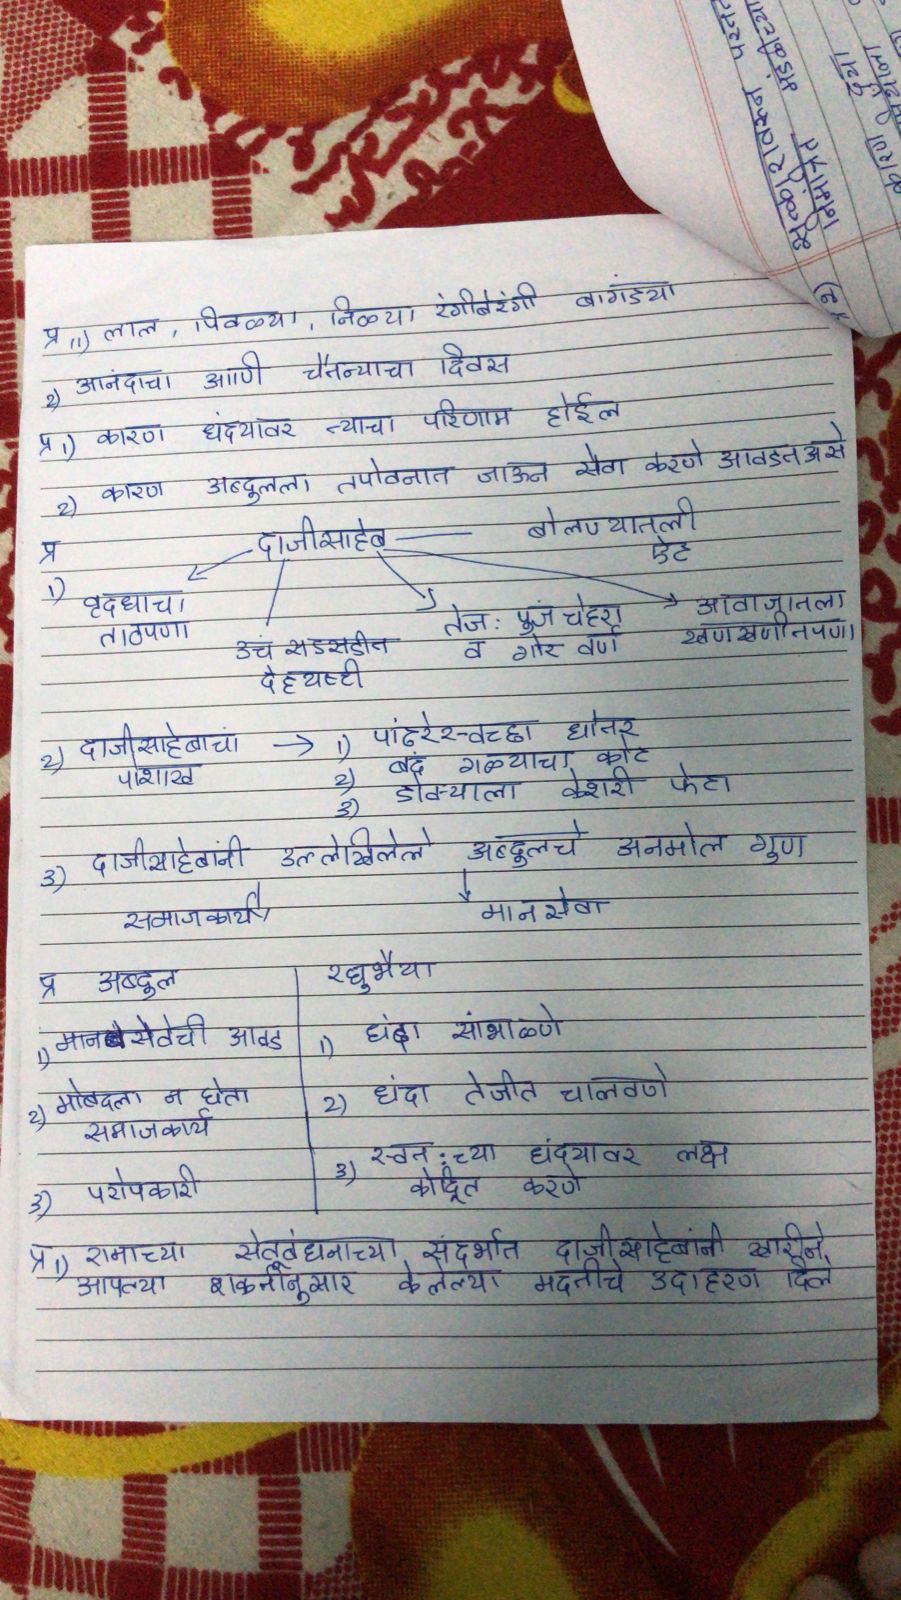 प्र 1) लाल, पिवळ्या, निळ्या रंगीबेरंगी बांगड्या
2) आनंदाचा आणि चैतन्याचा दिवस
प्र 1) कारण धंदयावर त्याचा परिणाम होईल
2) कारण अब्दुलला तपोवनात जाऊन सेवा करणे आवडत असे
प्र
1) दाजीसाहेब
बोलण्यातली
ऐट
वृदधाचा
ताठपणा
उंच सडसडीत
देहयष्टी
तेज: पुंज चेहरा
व गोर वर्ण
आवाजातला
खणखणीतपणा
2) दाजीसाहेबाचा पोशाख → 1) पांढरे स्वच्छ धोतर
2) बंद गळ्याचा कोट
3) डोक्याला केशरी फेटा
3) दाजीसाहेबांनी उल्लेखिलेले अब्दुलचे अनमोल गुण
समाजकार्य
मानसेवा
प्र अब्दुल
1) मानवसेवेची आवड
2) मोबदला न घेता
समाजकार्य
3) परोपकारी
रघुभैया
1) धंदा सांभाळणे
2) धंदा तेजीत चालवणे
3) स्वत:च्या धंदयावर लक्ष
केंद्रित करणे
प्र 1) रामाच्या सेतूबंधनाच्या संदर्भात दाजीसाहेबांनी खारीने
आपल्या शक्तीनुसार केलेल्या मदतीचे उदाहरण दिले